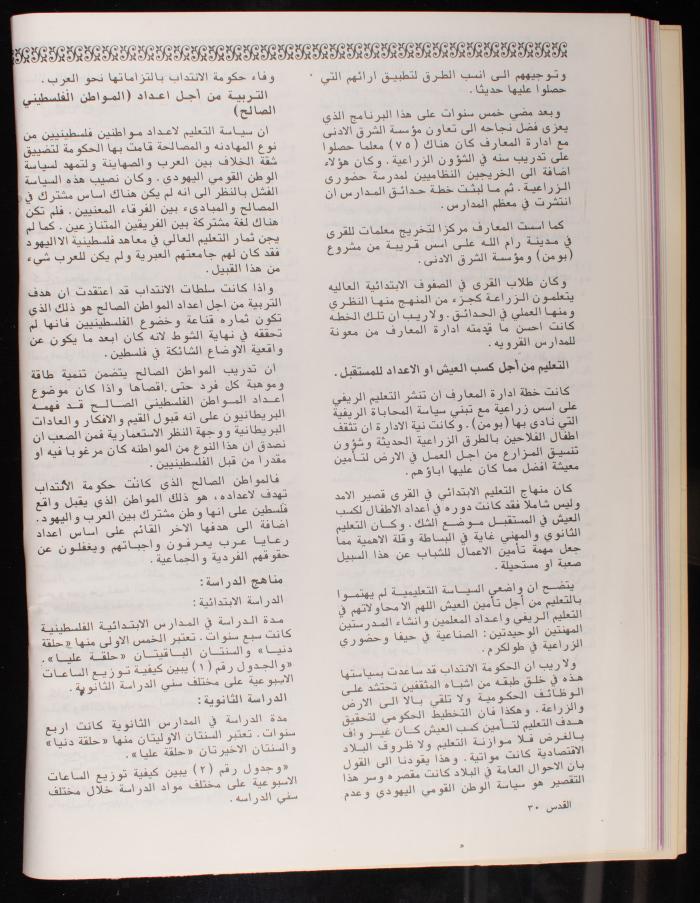 وتوجيههم الى انسب الطرق لتطبيق ارائهم التي
حصلوا عليها حديثا.
وبعد مضي خمس سنوات على هذا البرنامج الذي
يعزى فضل نجاحه الى تعاون مؤسسة الشرق الادنى
مع ادارة المعارف كان هناك (٧٥) معلما حصلوا
على تدريب سنه في الشؤون الزراعية. وكان هؤلاء
اضافة الى الخريجين النظاميين لمدرسة خضورى
الزراعية. ثم ما لبثت خطة حدائق المدارس ان
انتشرت في معظم المدارس.
كما اسست المعارف مركزا لتخريج معلمات للقرى
في مدينة رام الله على اسس قريبة من مشروع
(بومن) ومؤسسة الشرق الادنى.
وكان طلاب القرى في الصفوف الابتدائية العاليه
يتعلمون الزراعة كجزء من المنهج منها النظري
ومنها العملي في الحدائق. ولاريب ان تلك الخطه
كانت احسن ما قدمته ادارة المعارف من معونة
للمدارس القرويه.
التعليم من أجل كسب العيش او الاعداد للمستقبل.
كانت خطة ادارة المعارف ان تنشر التعليم الريفي
على اسس زراعية مع تبني سياسة المحاباة الريفية
التي نادى بها (بومن). وكانت نية الادارة ان تثقف
اطفال الفلاحين بالطرق الزراعية الحديثة وشؤون
تنسيق المزارع من اجل العمل في الارض لتأمين
معيشة افضل مما كان عليها اباؤهم.
كان منهاج التعليم الابتدائي في القرى قصير الامد
وليس شاملا فقد كانت دوره في اعداد الاطفال لكسب
العيش في المستقبل موضع الشك. وكان التعليم
الثانوي والمهني غاية في البساطة وقلة الاهمية مما
جعل مهمة تأمين الاعمال للشباب عن هذا السبيل
صعبة او مستحيلة.
يتضح ان واضعي السياسة التعليمية لم يهتموا
بالتعليم من أجل تأمين العيش اللهم الا محاولاتهم في
التعليم الريفي واعداد المعلمين وانشاء المدرستين
المهنتين الوحيدتين: الصناعية في حيفا وخضوري
الزراعية في طولكرم.
ولاريب ان الحكومة الانتداب قد ساعدت بسياستها
هذه في خلق طبقه من اشباه المثقفين تحتشد على
الوظائف الحكومية ولا تلقي بالا الى الارض
والزراعة. وهكذا فان التخطيط الحكومي لتحقيق
هدف التعليم لتأمين كسب العيش كان غير واف
بالغرض فلا موازنة التعليم ولا ظروف البلاد
الاقتصادية كانت مواتية. وهذا يقودنا الى القول
بان الاحوال العامة في البلاد كانت مقصره وسر هذا
التقصير هو سياسة الوطن القومي اليهودي وعدم
القدس ٣٠
وفاء حكومة الانتداب بالتزاماتها نحو العرب.
التربية من أجل اعداد (المواطن الفلسطيني
الصالح)
ان سياسة التعليم لاعداد مواطنين فلسطينيين من
نوع المهادنه والمصالحة قامت بها الحكومة لتضييق
شقة الخلاف بين العرب والصهاينة ولتمهد لسياسة
الوطن القومي اليهودي. وكان نصيب هذه السياسة
الفشل بالنظر الى انه لم يكن هناك اساس مشترك في
المصالح والمبادىء بين الفرقاء المعنيين. فلم تكن
هناك لغة مشتركة بين الفريقين المتنازعين. كما لم
يجن ثمار التعليم العالي في معاهد فلسطينية الا اليهود
فقد كان لهم جامعتهم العبرية ولم يكن للعرب شيء
من هذا القبيل.
واذا كانت سلطات الانتداب قد اعتقدت ان هدف
التربية من اجل اعداد المواطن الصالح هو ذلك الذي
تكون ثماره قناعة وخضوع الفلسطينيين فانها لم
تحققه في نهاية الشوط لانه كان ابعد ما يكون عن
واقعية الاوضاع الشائكة في فلسطين.
ان تدريب المواطن الصالح يتضمن تنمية طاقة
وموهبة كل فرد حتى اقصاها واذا كان موضوع
اعداد المواطن الفلسطيني الصالح قد فهمه
البريطانيون على انه قبول القيم والافكار والعادات
البريطانية ووجهة النظر الاستعمارية فمن الصعب ان
نصدق ان هذا النوع من المواطنه كان مرغوبا فيه او
مقدرا من قبل الفلسطينيين.
فالمواطن الصالح الذي كانت حكومة الانتداب
تهدف لاعداده، هو ذلك المواطن الذي يقبل واقع
فلسطين على انها وطن مشترك بين العرب واليهود.
اضافة الى هدفها الاخر القائم على اساس اعداد
رعايا عرب يعرفون واجباتهم ويغفلون عن
حقوقهم الفردية والجماعية.
مناهج الدراسة:
الدراسة الابتدائية:
مدة الدراسة في المدارس الابتدائية الفلسطينية
كانت سبع سنوات. تعتبر الخمس الاولى منها «حلقة
دنيا» والسنتان الباقيتان «حلقة عليا».
«والجدول رقم (١) يبين كيفية توزيع الساعات
الاسبوعية على مختلف سني الدراسة الثانوية.
الدراسة الثانوية:
مدة الدراسة في المدارس الثانوية كانت اربع
سنوات. تعتبر السنتان الاوليتان منها «حلقة دنيا»
والسنتان الاخيرتان «حلقة عليا».
«وجدول رقم (٢) يبين كيفية توزيع الساعات
الاسبوعية على مختلف مواد الدراسة خلال مختلف
سني الدراسه.